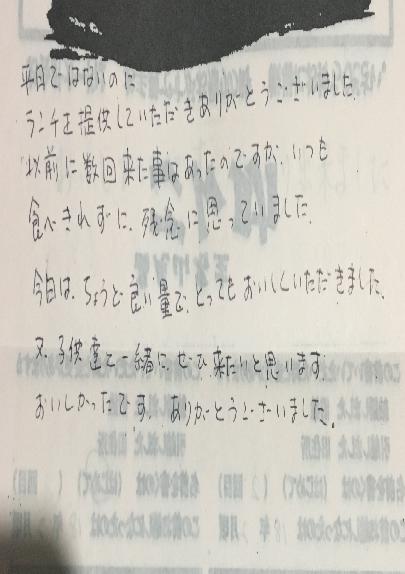 平日ではないのに
ランチを提供していただきありがとうございました。
以前に数回来た事はあったのですが、いつも
食べきれずに、残念に思っていました。
今日は、ちょうど良い量で、とってもおいしくいただきました。
又、子供達と一緒に、ぜひ来たいと思います。
おいしかったです。ありがとうございました。